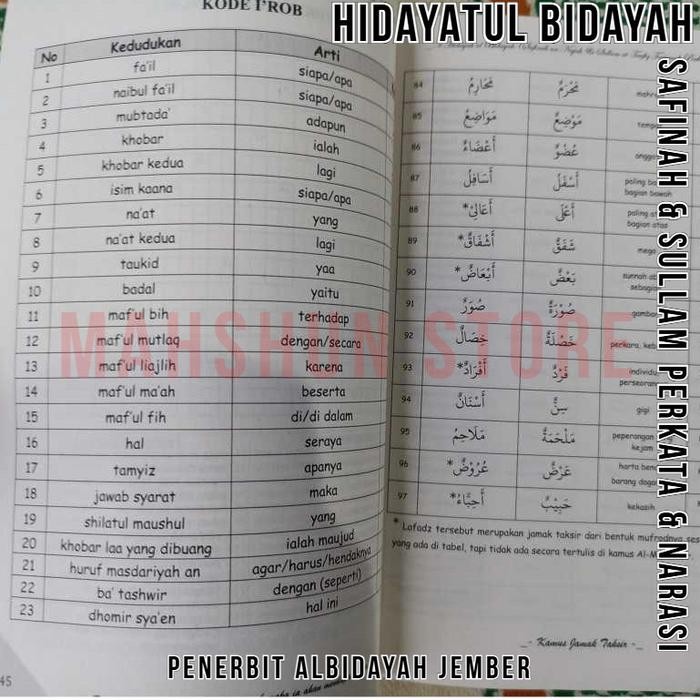 HIDAYATUL BIDAYAH
SAFINAH & SULLAM PERKATA & NARASI
KODE I'ROB
No Kedudukan Arti
1 fa'il siapa/apa
2 naibul fa'il siapa/apa
3 mubtada' adapun
4 khobar ialah
5 khobar kedua lagi
6 isim kaana siapa/apa
7 na'at yang
8 na'at kedua lagi
9 taukid yaa
10 badal yaitu
11 maf'ul bih terhadap
12 maf'ul mutlaq dengan/secara
13 maf'ul liajlih karena
14 maf'ul ma'ah beserta
15 maf'ul fih di/di dalam
16 hal seraya
17 tamyiz apanya
18 jawab syarat maka
19 shilatul maushul yang
20 khobar laa yang dibuang ialah maujud
21 huruf masdariyah an agar/harus/hendaknya
22 ba' tashwir dengan (seperti)
23 dhomir sya'en hal ini
45
84 مَحَارِمُ مَحْرَمٌ
85 مَوَاضِعُ مَوْضِعٌ
86 أَعْضَاءٌ عُضْوٌ
87 أَسَافِلُ أَسْفَلُ paling
bagian bawah
88 أَعَالِىْ* أَعْلَى paling
bagian atas
89 أَشْفَاقٌ* شَفَقٌ mega
90 أَبْعَاضٌ* بَعْضٌ sunnah
91 صُوَرٌ صُوْرَةٌ
92 خِصَالٌ خَصْلَةٌ perkara,
93 أَفْرَادٌ* فَرْدٌ individu
94 أَسْنَانٌ سِنٌّ gigi
95 مَلَاحِمُ مَلْحَمَةٌ peperangan
kejam
96 عُرُوْضٌ* عَرْضٌ harta
barang
97 أَحِبَّاءُ* حَبِيْبٌ kekasih
* Lafadz tersebut merupakan jamak taksir dari bentuk mufrodnya
yang ada di tabel, tapi tidak ada secara tertulis di kamus
Kamus Jamak Taksir
MAHSHUN STORE
PENERBIT ALBIDAYAH JEMBER